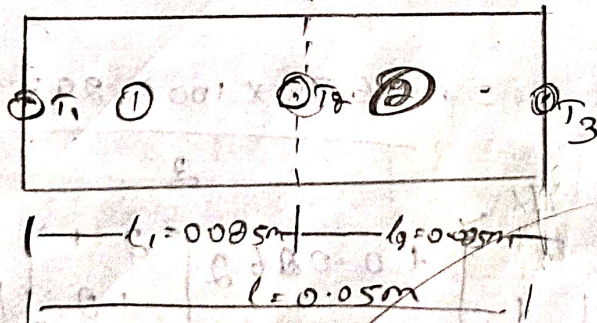 T₁ ① T₂ ② T₃
l₁ = 0.025m l₂ = 0.025m
l = 0.05m